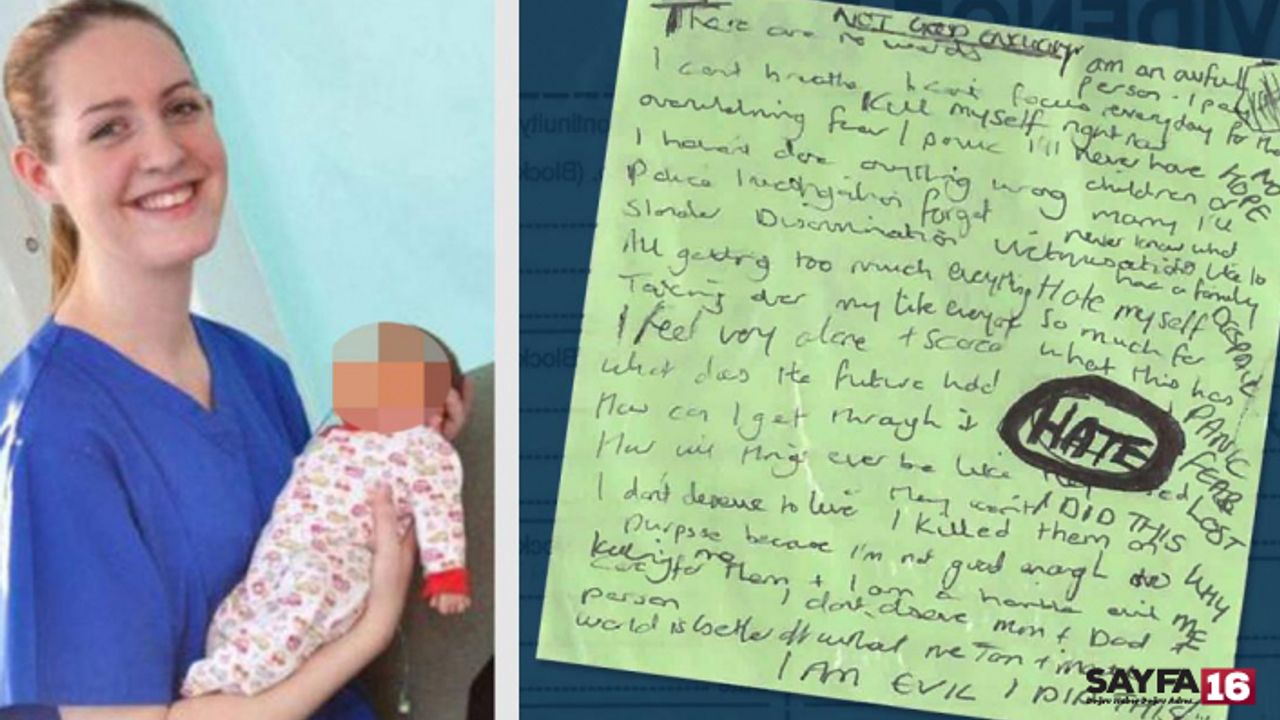 NOT GOOD ENOUGH
There are no words
I am an awful
person - I pay
everyday for that
I can't breathe I can't focus
Kill myself right now
overwhelming fear / panic
I'll never have
children or
marry I'll
never know what
like to
had a family
NO
HOPE
I haven't done anything wrong
Police investigation forget
Slander Discrimination Victimisation
All getting too much everything
Hate myself
so much for
what this has
Taking over my life
I feel very alone + scared
What does the future hold
How can I get through it
How will things ever be like
HATE
DESPAIR
PANIC
FEAR
LOST
I don't deserve to live
I DID THIS
I killed them on
purpose because I'm not good enough to
care for them + I am a horrible evil
person
WHY
ME
I don't deserve mum + Dad
world is better off without me
I AM EVIL I DID THIS
SAYFA 16